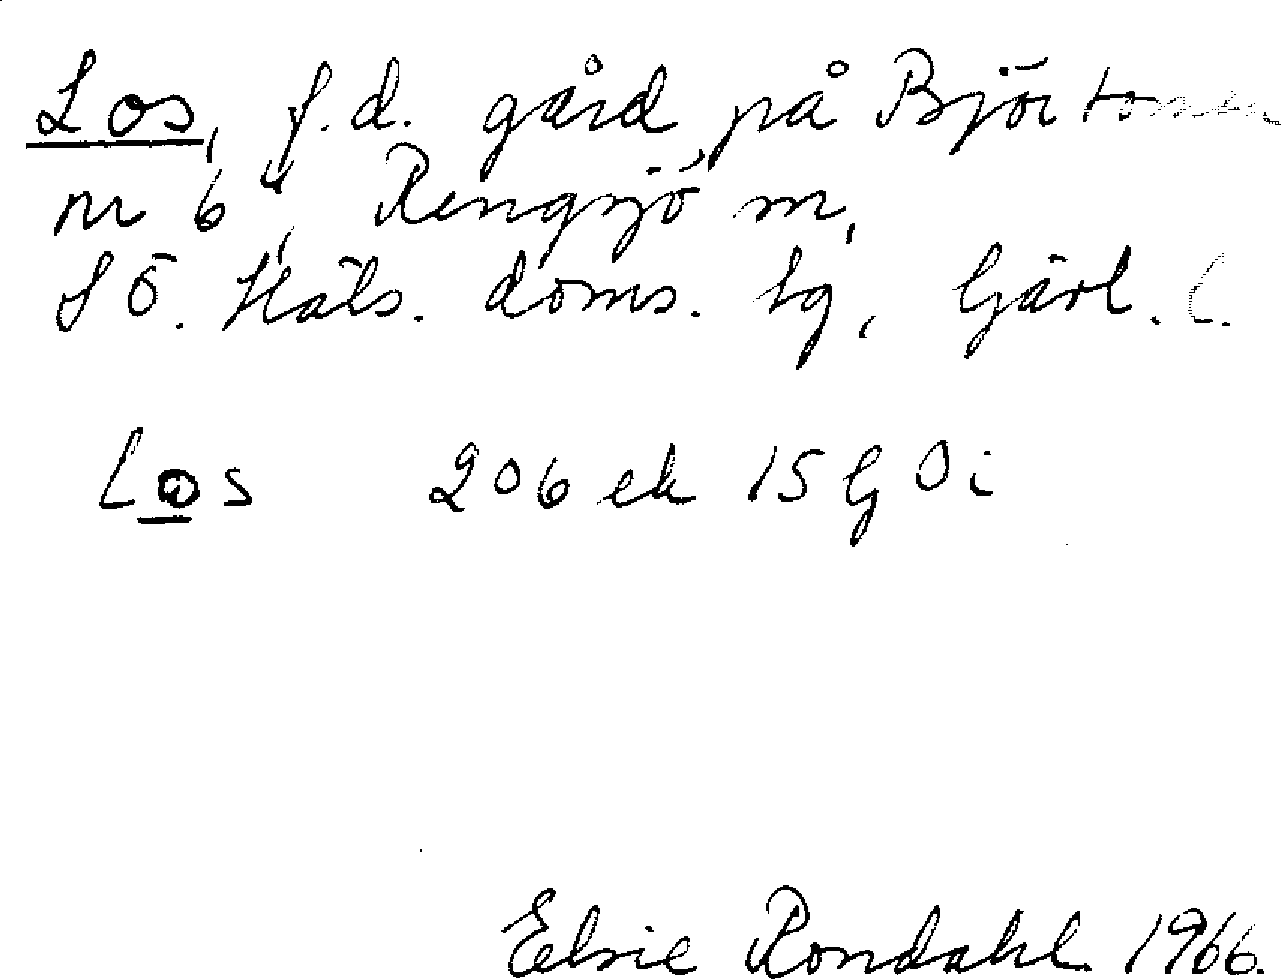 Los, f.d. gård på Björtomen
nr 6 4, Rengsjö sn,
SÖ. Häls. doms. hg, Gävl. l.
Los 206 ek 15 G Oi
Elsie Rondahl 1966.